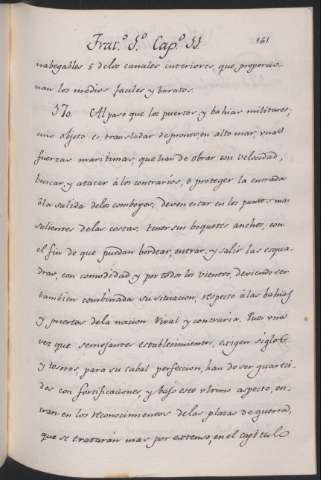 Trat.º 5.º Cap.º II. 161
nabegables ó delos canales interiores, que proporcio-
nan los medios faciles y baratos.
370. Al paso que los puertos y bahias militares,
cuio objeto es, trasladar depronto, en alto mar, unas
fuerzas maritimas, que han de obrar con velocidad,
buscar, y atacar álos contrarios, ó proteger la entrada
óla salida delos comboyes, deven estar en los puntos mas
salientes delas costas, tener sus boquetes anchos, con
el fin de que puedan bordear, entrar, y salir las esqua-
dras, con comodidad y por todos los vientos, deviendo ser
tambien combinada su situacion, respecto álas bahias
y puertos dela nacion rival y contraria. Pues una
vez que semejantes establecimientos, exigen siglos
y tesoros, para su cabal perfeccion, han de ser guareci-
dos con fortificaciones, y bajo este ultimo aspecto, en-
tran en los reconocimientos delas plazas de guerra,
que se trataràn mas por extenso, en el capitulo